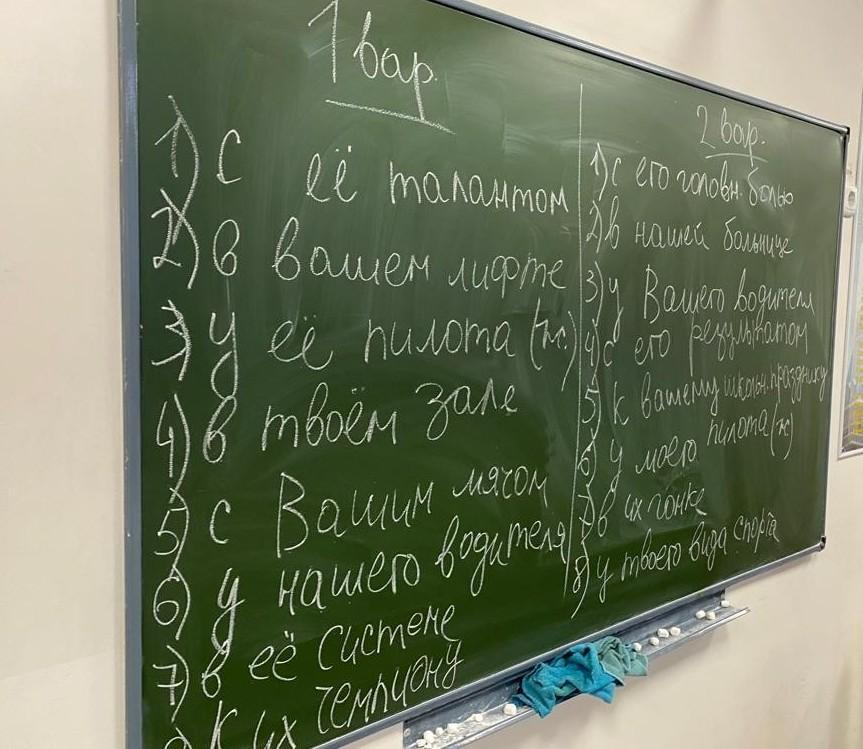 1 вар.
1) с её талантом
2) в вашем лифте
3) у её пилота (ж.)
4) в твоём зале
5) с Вашим мячом
6) у нашего водителя
7) в её системе
к их чемпиону
2 вар.
1) с его головн. болью
2) в нашей больнице
3) у Вашего водителя
4) с его результатом
5) к вашему школьн. празднику
6) у моего пилота (ж)
7) в их гонке
8) у твоего вида спорта